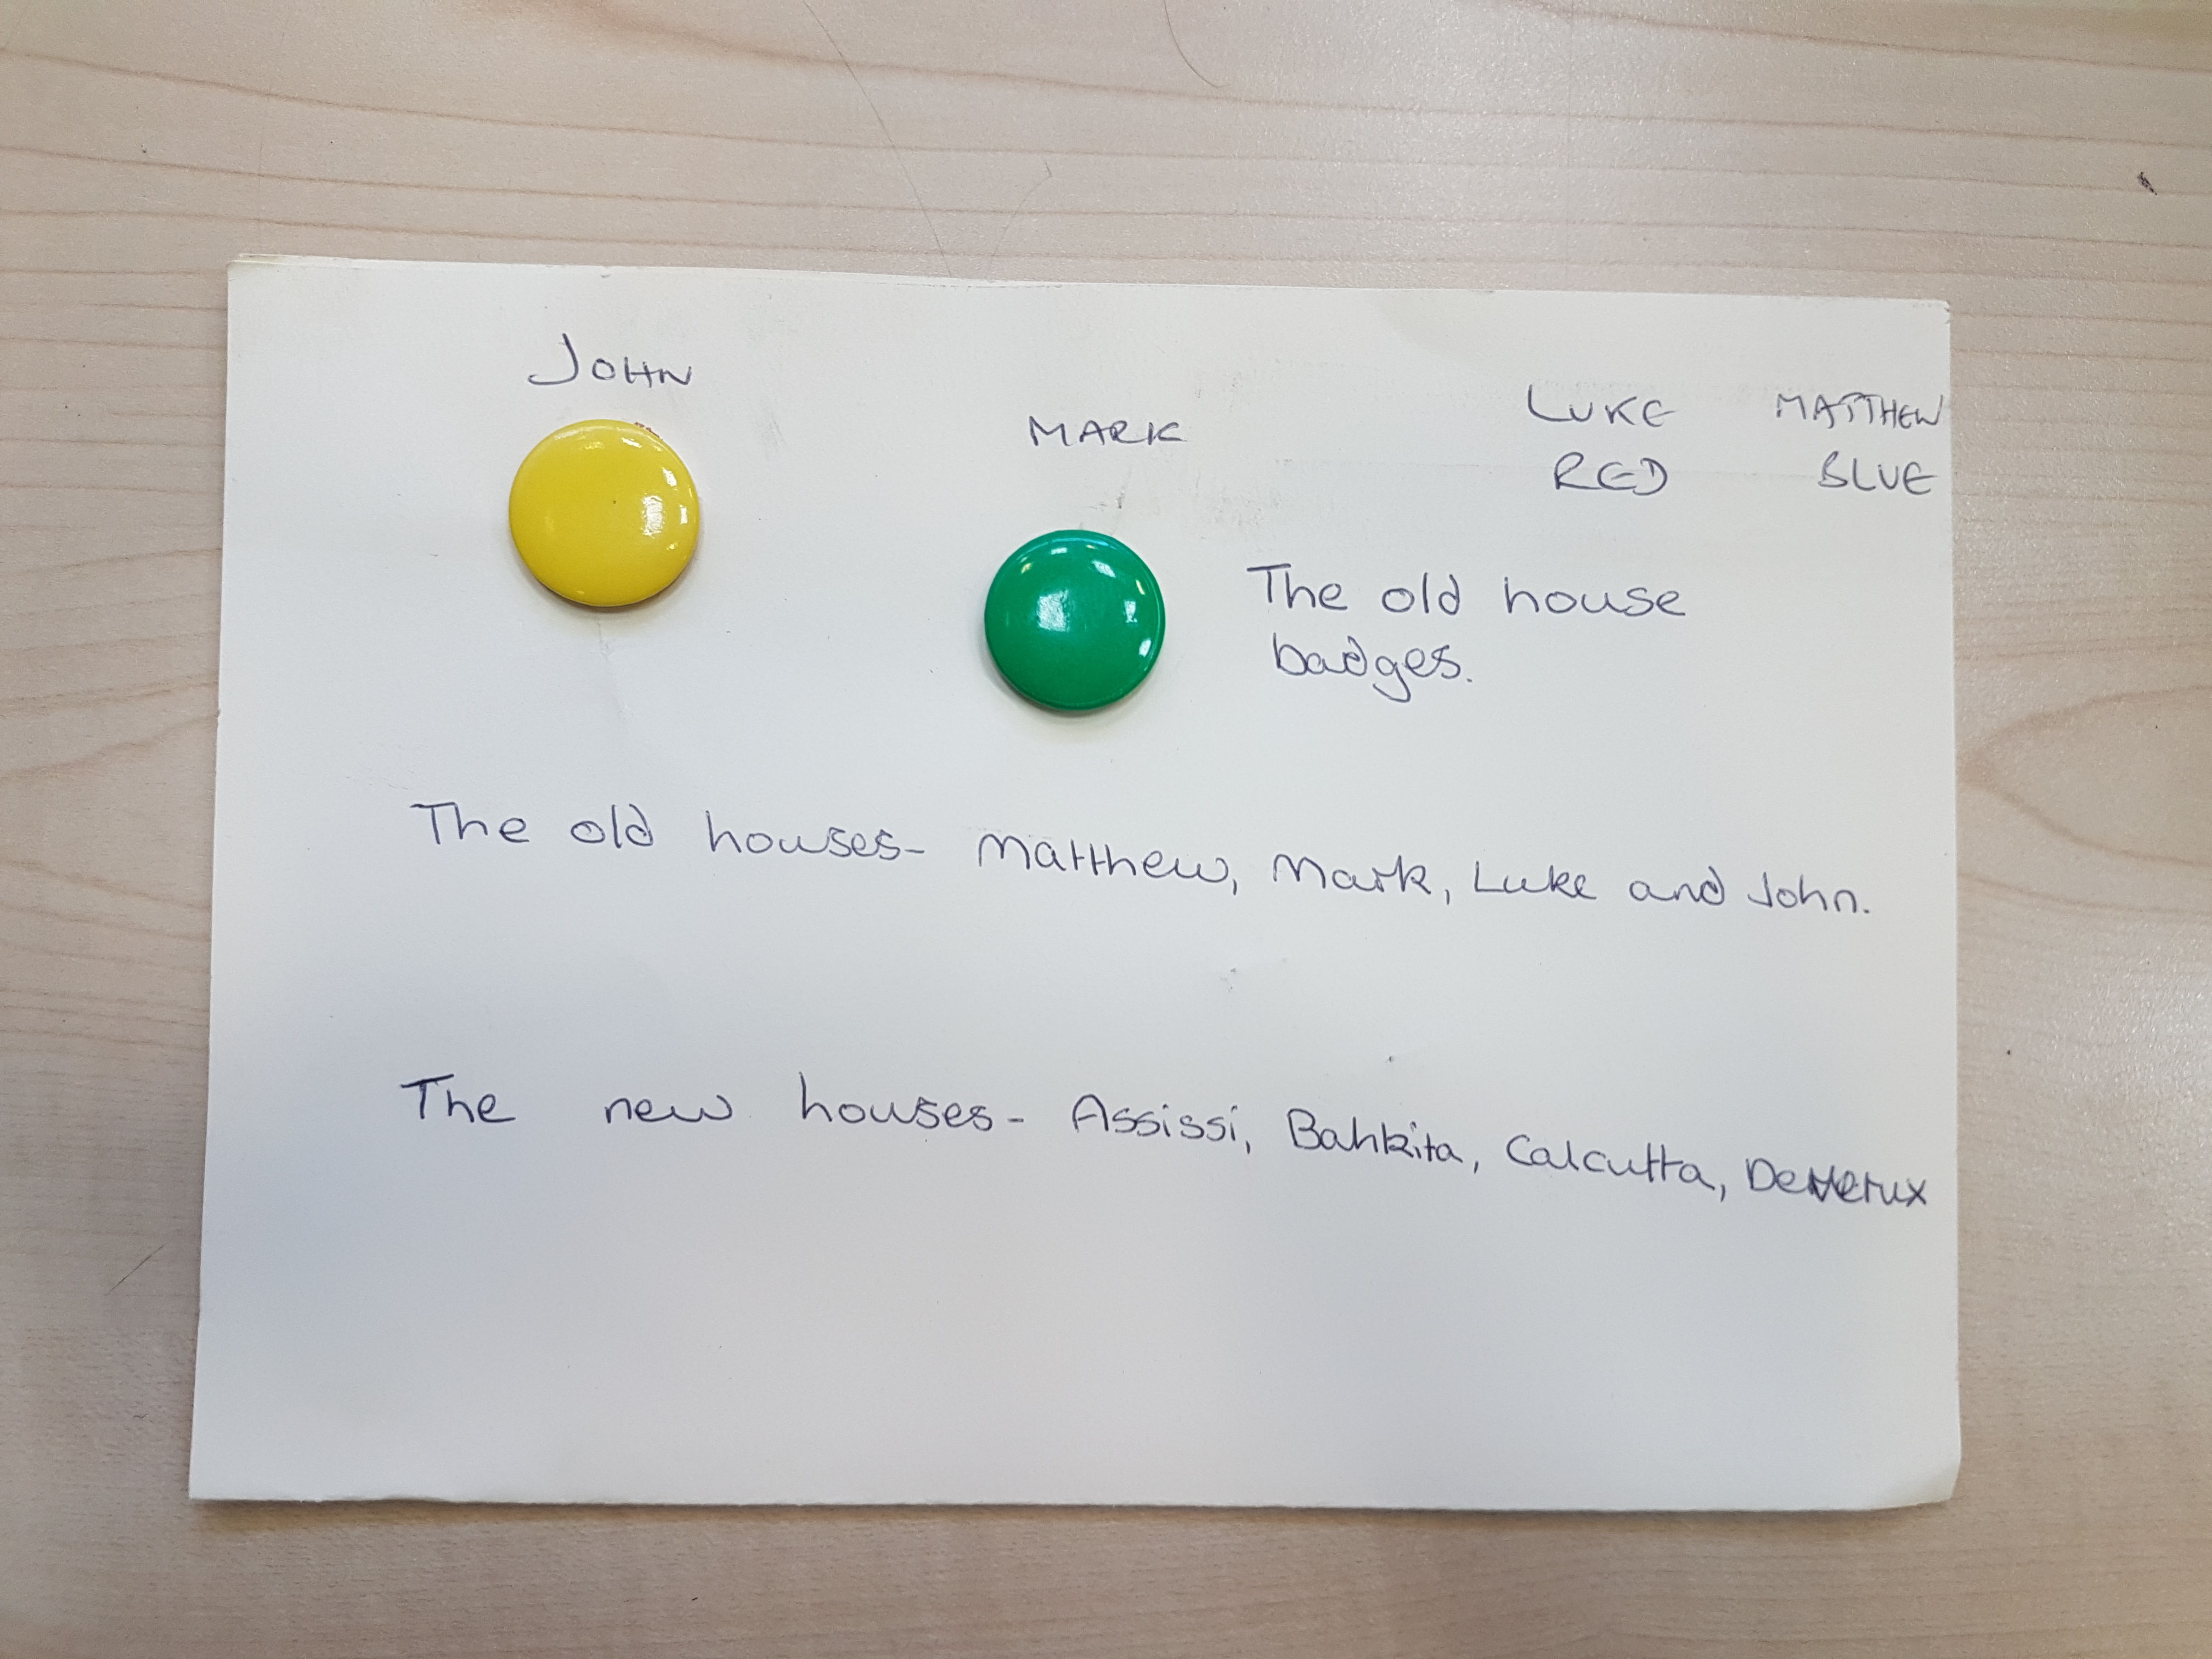 JOHN
MARK
LUKE MATTHEW
RED BLUE
The old house
badges.
The old houses- Matthew, Mark, Luke and John.
The new houses- Assissi, Bahkita, Calcutta,